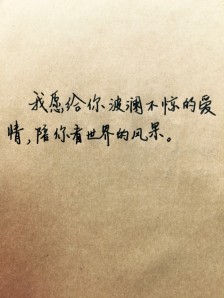 我愿给你波澜不惊的爱
情,陪你看世界的风景。